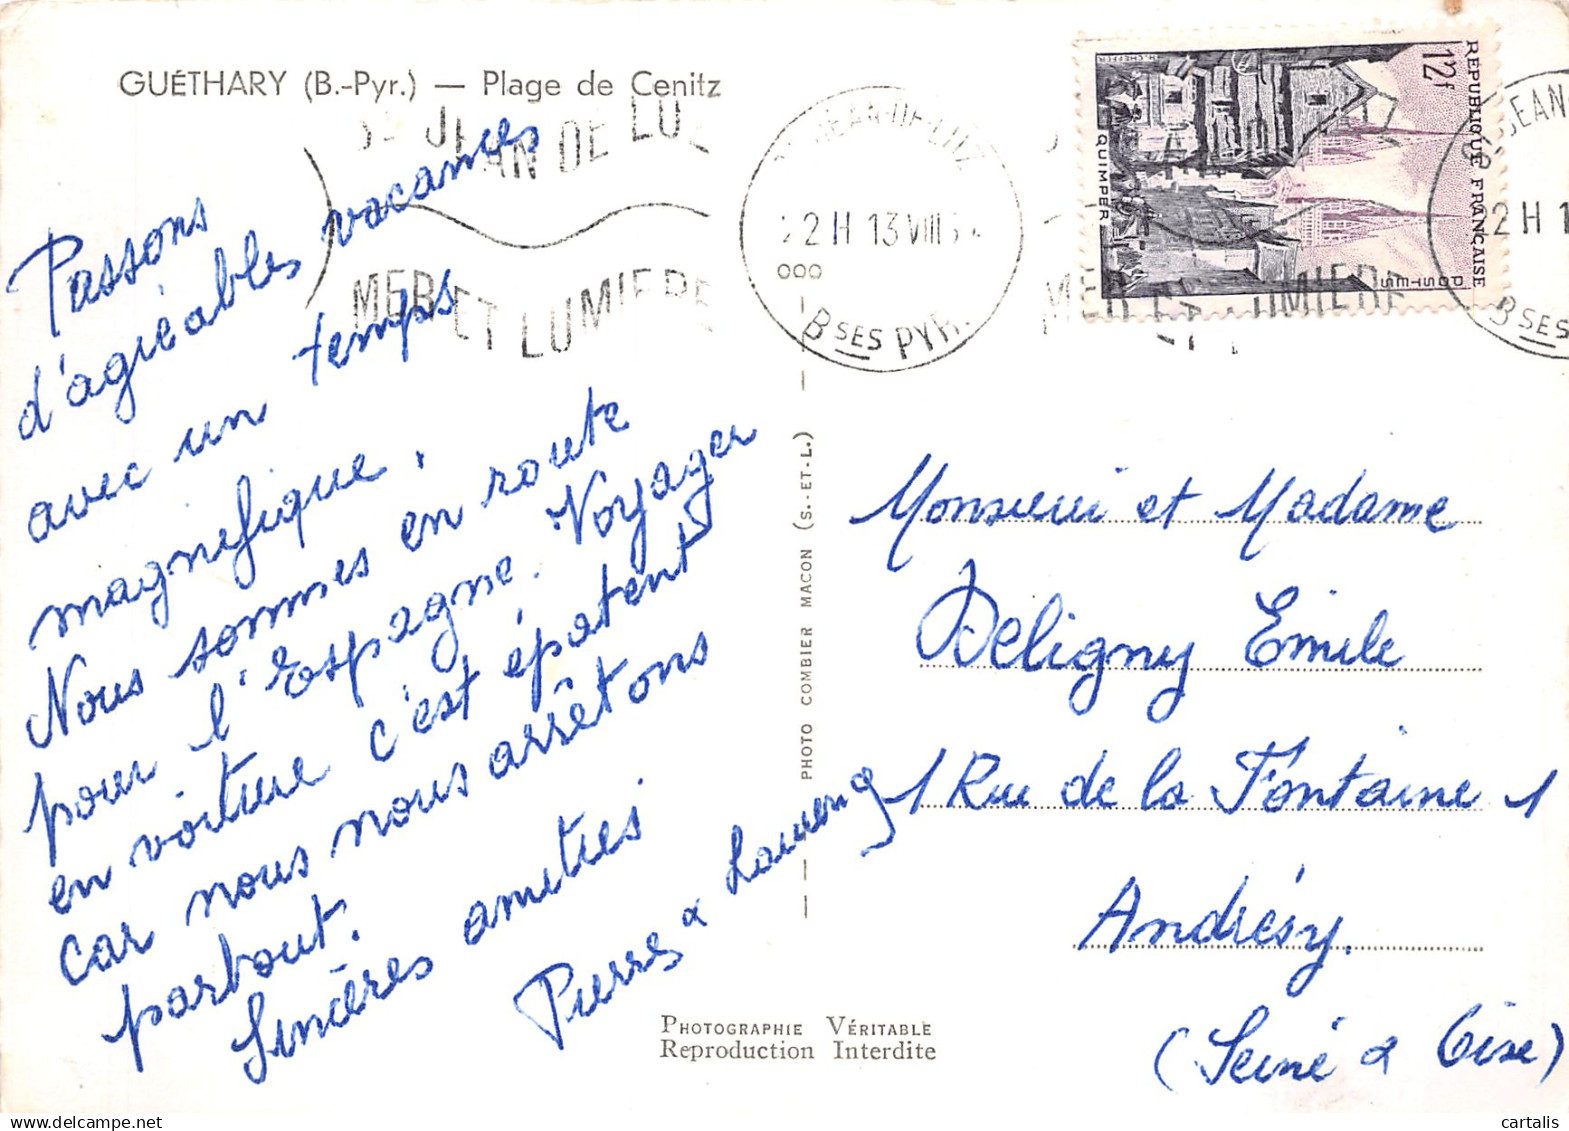 GUÉTHARY (B.-Pyr.) — Plage de Cenitz
ST JEAN DE LUZ
MER ET LUMIERE
ST JEAN-DE-LUZ
22H 13 VIII
BSES PYR.
REPUBLIQUE FRANÇAISE
12f
POSTES
QUIMPER
MER ET LUMIERE
JEAN
22H 1
BSES
Passons
d'agréables vacances
avec un temps
magnefique.
Nous sommes en route
pour l'Espagne. Voyager
en voiture c'est épatent
car nous nous arrêtons
partout.
Sincères amities
Pierre &
PHOTO COMBIER MACON (S.-ET-L.)
Monsieur et Madame
Deligny Emile
1 Rue de la Fontaine 1
Andrésy.
(Seine & Oise)
PHOTOGRAPHIE VÉRITABLE
Reproduction Interdite
cartalis